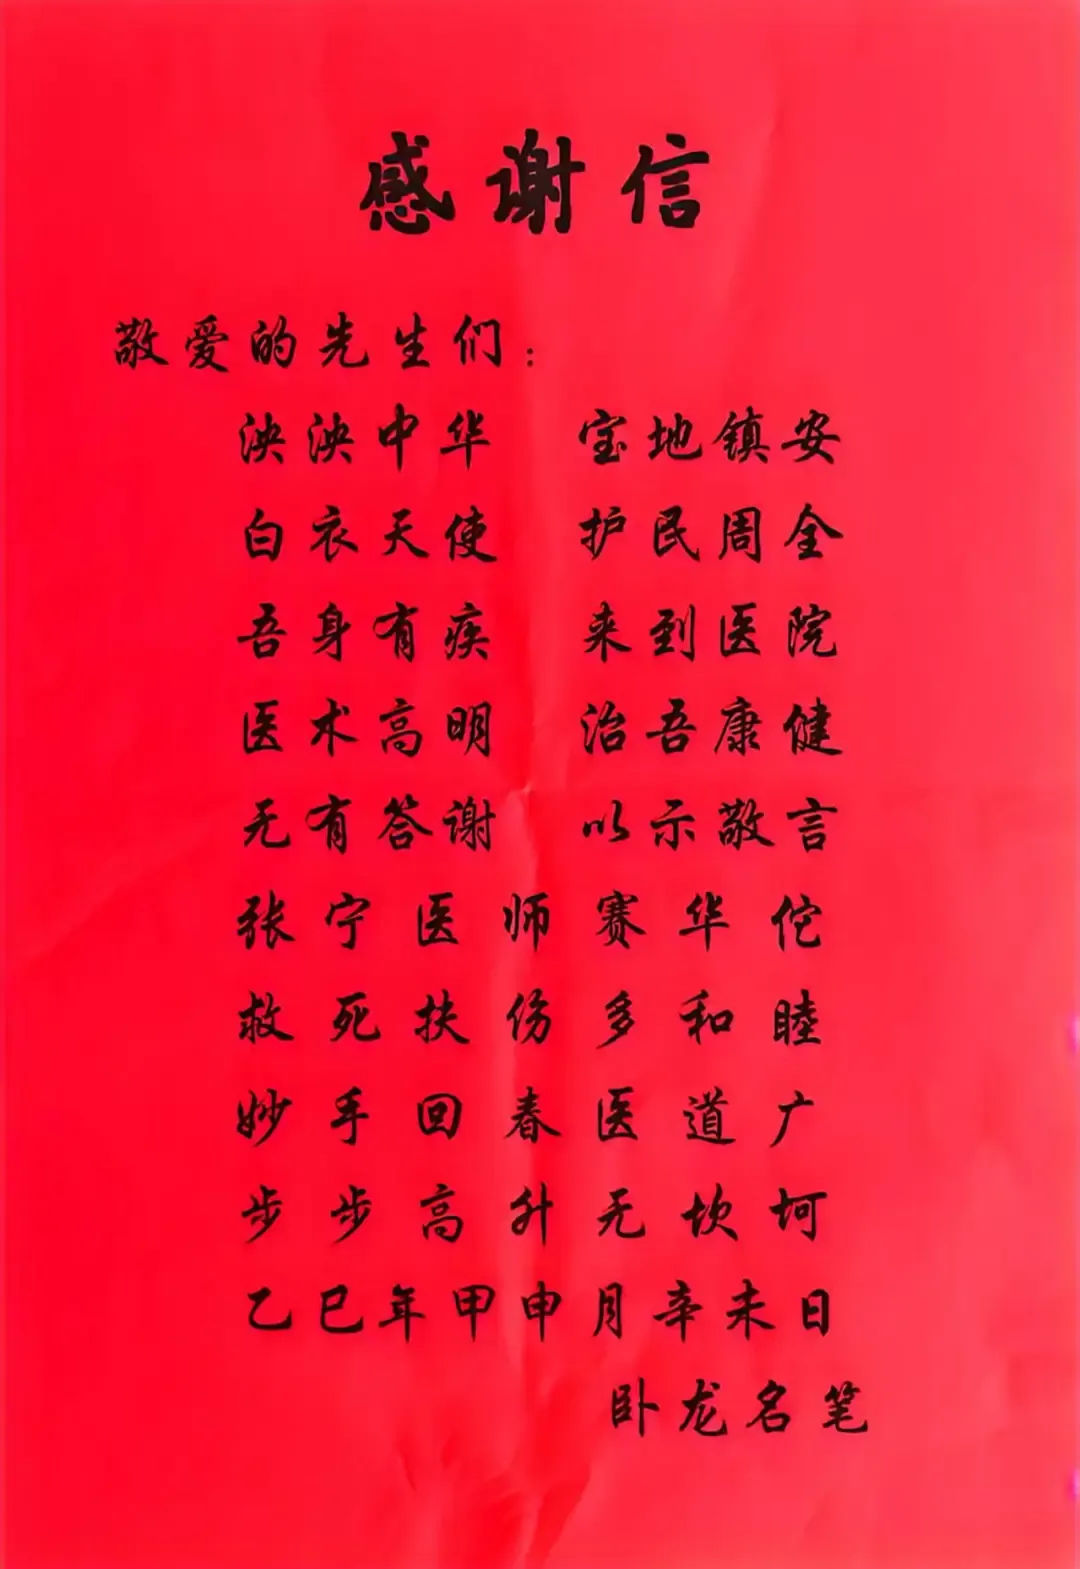 感谢信
敬爱的先生们：
泱泱中华 宝地镇安
白衣天使 护民周全
吾身有疾 来到医院
医术高明 治吾康健
无有答谢 以示敬言
张宁医师赛华佗
救死扶伤多和睦
妙手回春医道广
步步高升无坎坷
乙巳年甲申月辛未日
卧龙名笔